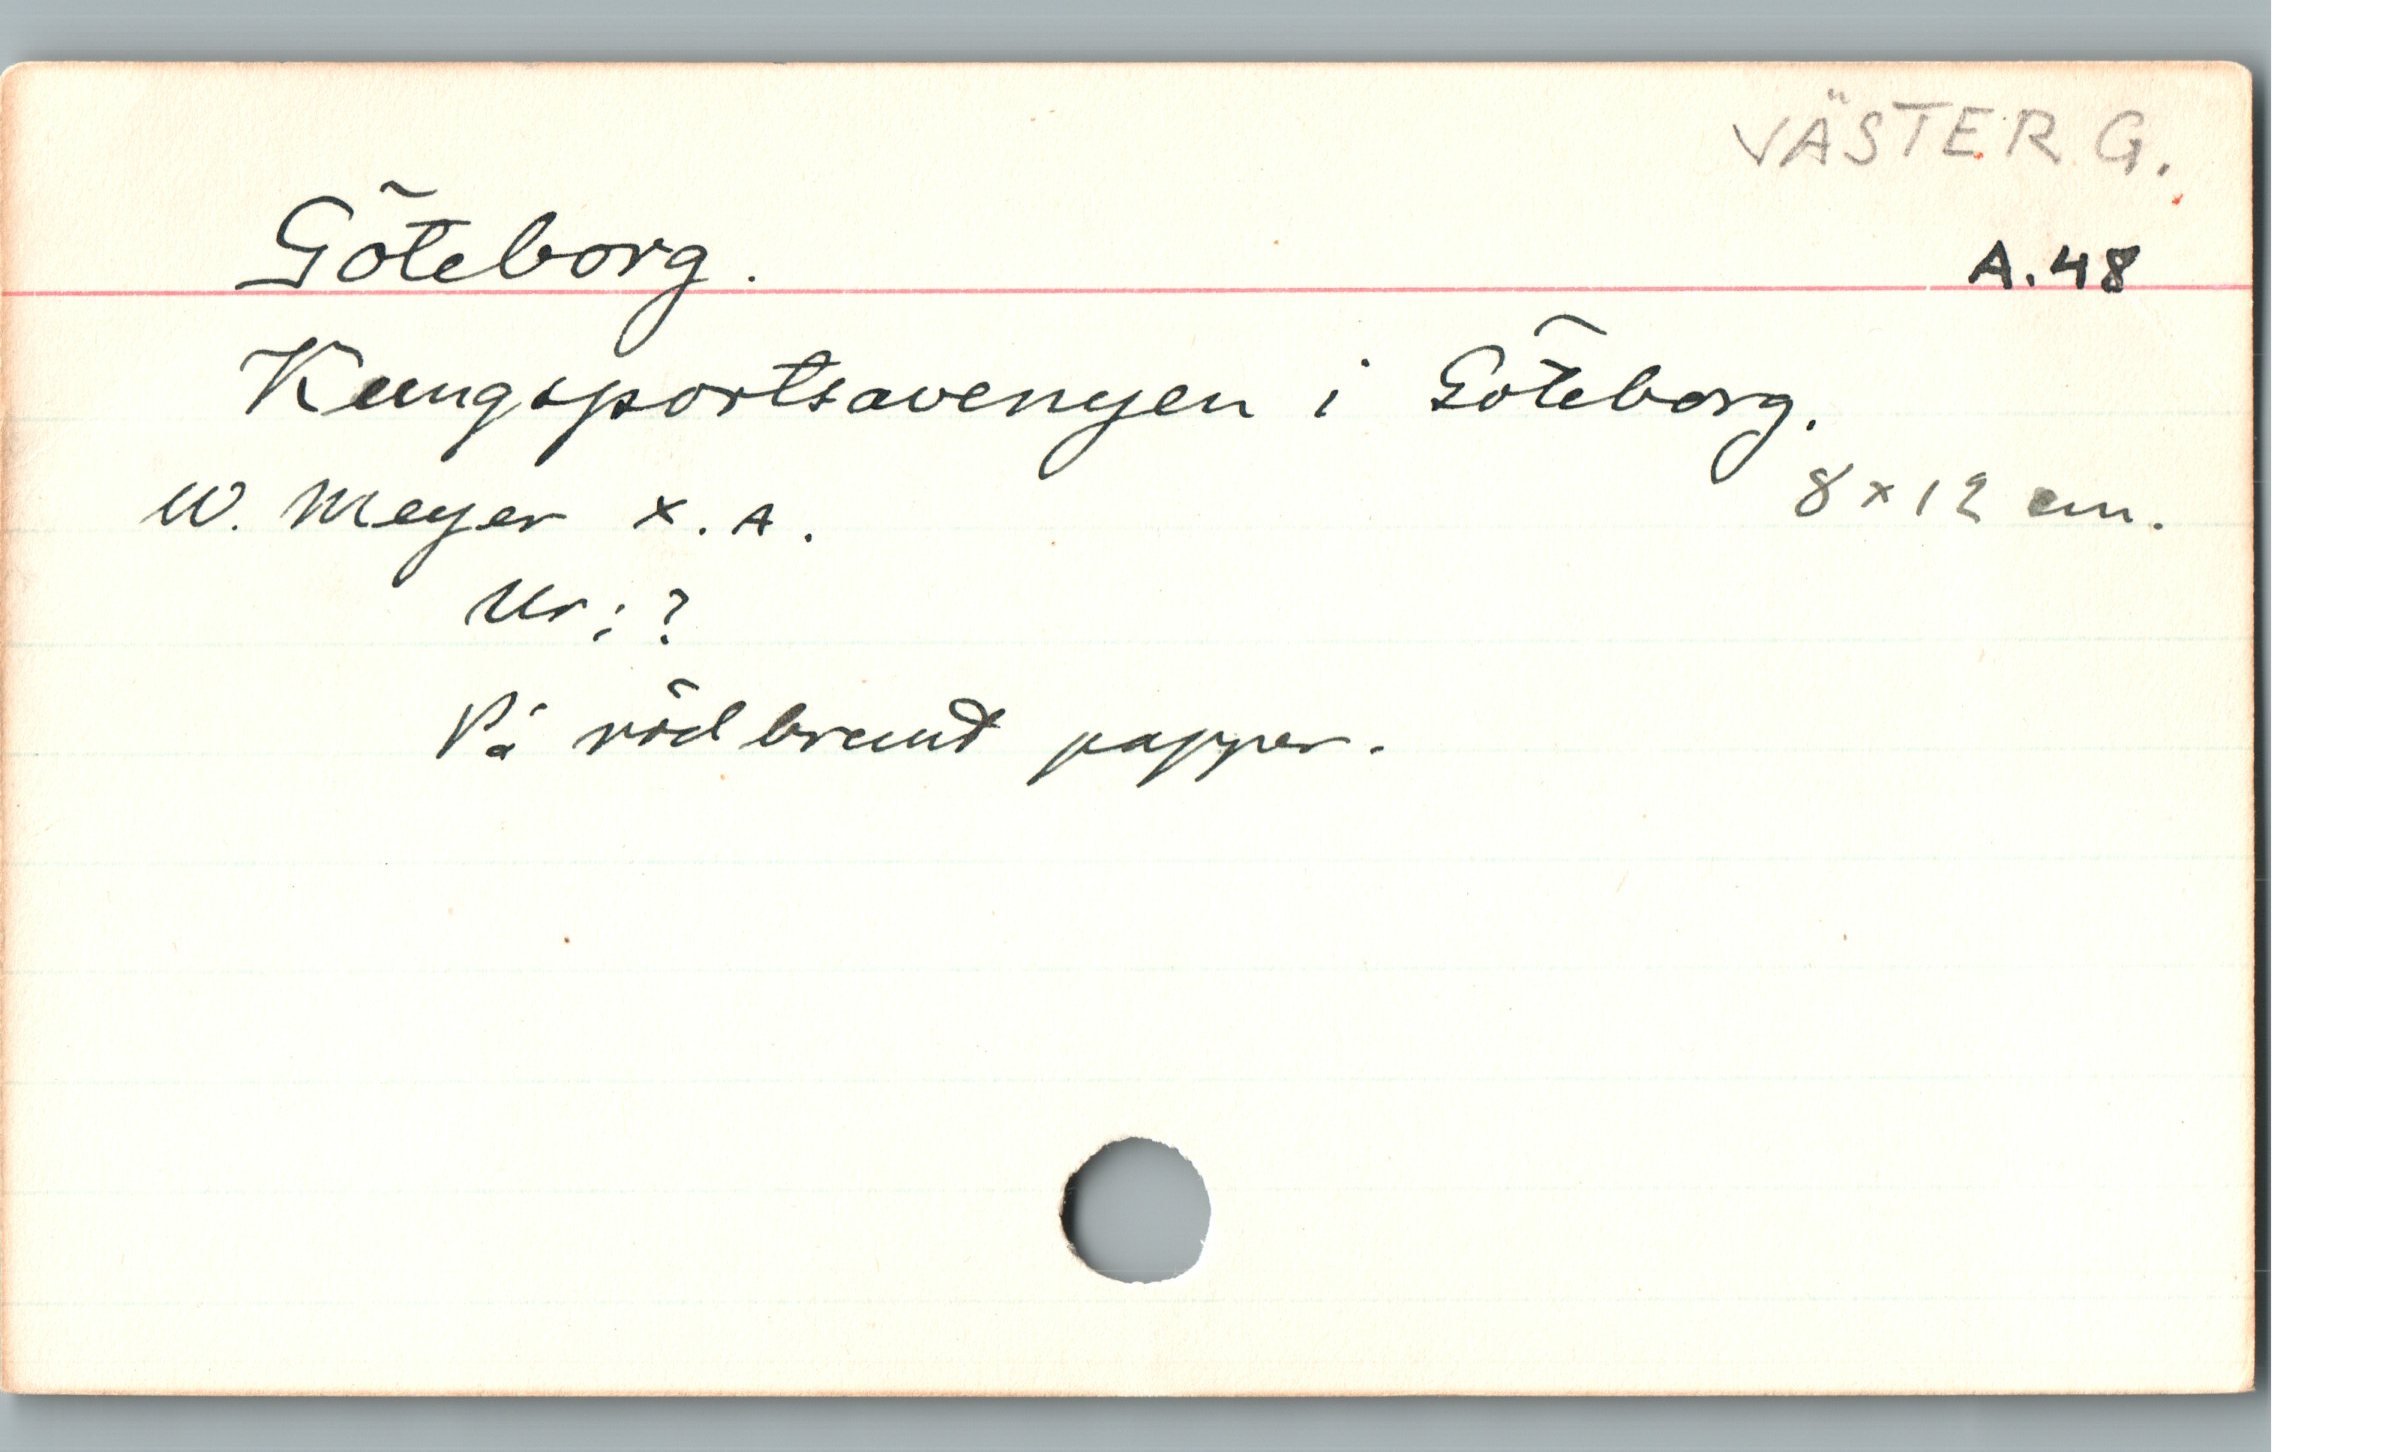 VÄSTER G.
Göteborg.
A.48
Kungsportsavenyen i Göteborg.
W. Meyer X.A.
8 x 12 cm.
Ur: ?
På rödbrunt papper.